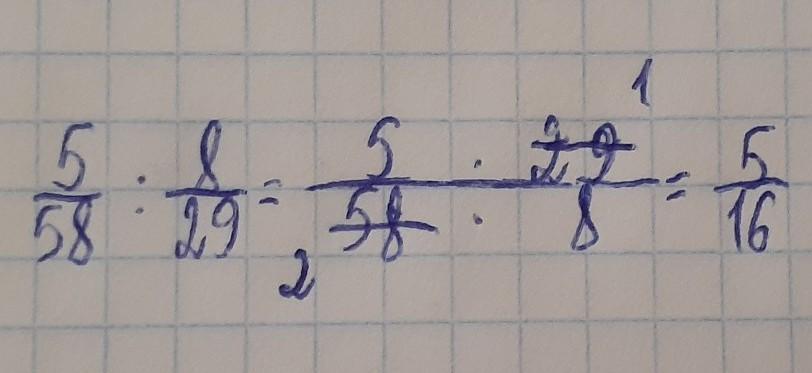 5/58 : 8/29 = 5 · 29 1/2 58 · 8 = 5/16